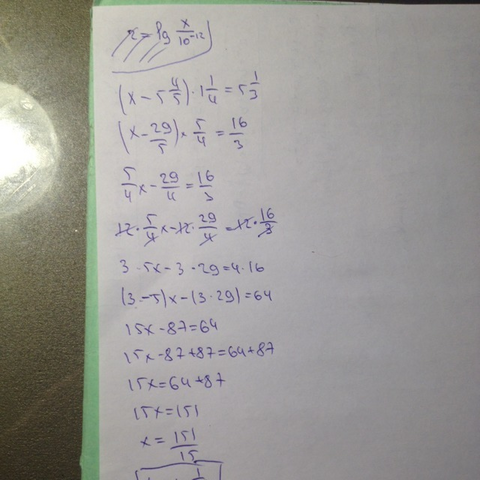 r = lg x/10⁻¹²
(x - 5 4/5) · 1 1/4 = 5 1/3
(x - 29/5) · 5/4 = 16/3
5/4 x - 29/4 = 16/3
12 · 5/4 x - 12 · 29/4 = 12 · 16/3
3 · 5x - 3 · 29 = 4 · 16
(3 · 5)x - (3 · 29) = 64
15x - 87 = 64
15x - 87 + 87 = 64 + 87
15x = 64 + 87
15x = 151
x = 151/15